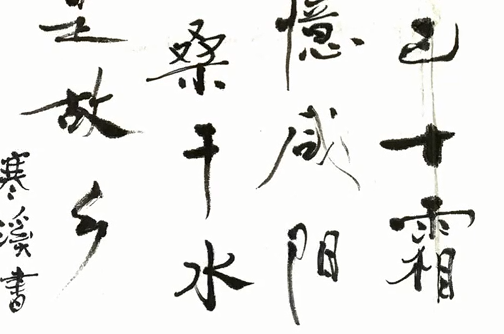 已十霜
憶咸阳
桑干水
故乡
寒溪書